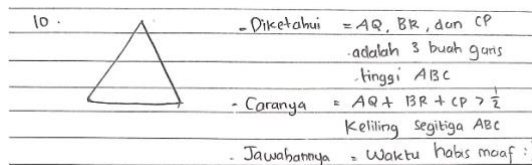 10.
- Diketahui = AQ, BR, dan CP
adalah 3 buah garis
tinggi ABC
- Caranya = AQ + BR + CP > 1/2
Keliling segitiga ABC
- Jawabannya = Waktu habis maaf :